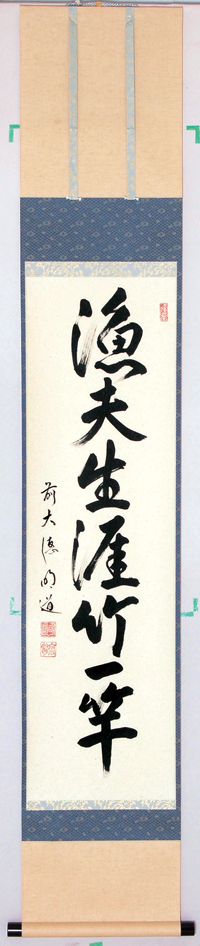 漁夫生涯竹一竿
前大徳明道